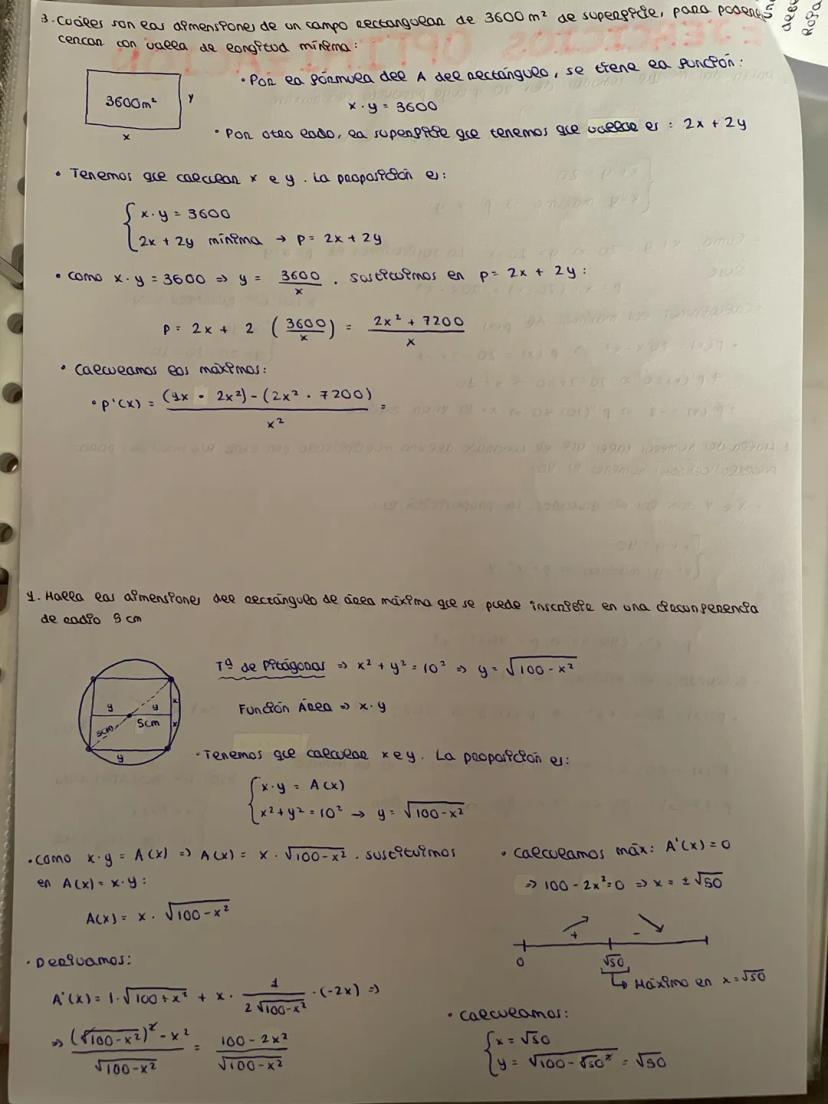 3. Cuáles son las dimensiones de un campo rectangular de 3600 m² de superficie, para poder
cercar con valla de longitud mínima:
3600m²
y
x
• Por la fórmula del A del rectángulo, se tiene la función:
x · y = 3600
• Por otro lado, la superficie que tenemos que vallar es: 2x + 2y
• Tenemos que calcular x e y. La proposición es:
{ x · y = 3600
2x + 2y mínima → P = 2x + 2y
• Como x · y = 3600 => y = 3600/x . Sustituimos en p = 2x + 2y:
P = 2x + 2 (3600/x) = 2x² + 7200 / x
• Calculamos los máximos:
• P'(x) = (4x · 2x²) - (2x² · 7200) / x² =
4. Halla las dimensiones del rectángulo de área máxima que se puede inscribir en una circunferencia
de radio 5 cm
y y x
5cm 5cm x
y
Tª de Pitágoras => x² + y² = 10² => y = √100 - x²
Función Área => x · y
• Tenemos que calcular x e y. La proposición es:
{ x · y = A(x)
x² + y² = 10² → y = √100 - x²
• Como x · y = A(x) => A(x) = x · √100 - x² . Sustituimos
en A(x) = x · y:
A(x) = x · √100 - x²
• Derivamos:
A'(x) = 1 · √100 + x² + x · 1 / 2√100 - x² · (-2x) =>
=> (√100 - x²)² - x² / √100 - x² = 100 - 2x² / √100 - x²
• Calculamos máx: A'(x) = 0
=> 100 - 2x² = 0 => x = ± √50
+ -
0 √50
↳ Máximo en x = √50
• Calculamos:
{ x = √50
y = √100 - √50² = √50